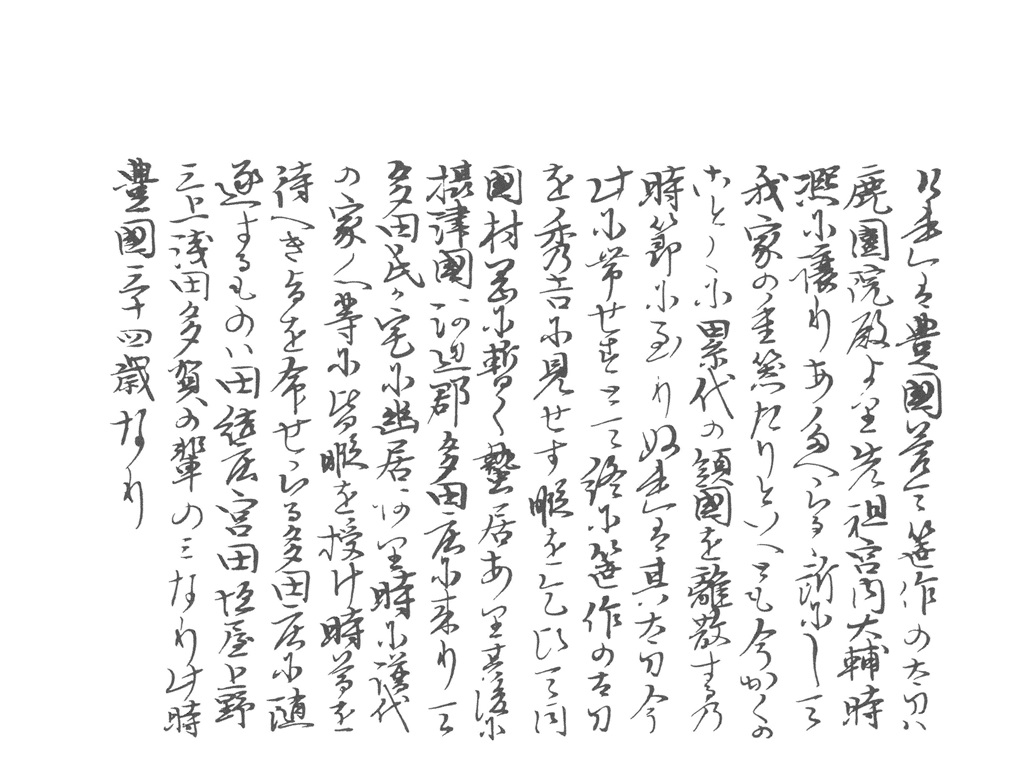 豊國曽て笹作の太刀ハ
鹿園院殿より先祖宮内大輔時
熈に讓りあたへらる所にして
我家の重器たりといへとも今かくの
ことくに累代の領國を離散するの
時節に至りぬ其太刀今
此に帯せすとて終に笹作の太刀
を秀吉に見せす暇を乞ひて同
國村岡に暫く蟄居あり其後に
攝津國河辺郡多田庄に来りて
多田氏か宅に幽居あり時に譜代
の家人等に皆暇を授け時節を
待へき旨を命せらる多田庄に随
逐するものハ田結庄宮田垣屋上野
三上浅田多賀の輩のミなり此時
豊國三十四歳なり